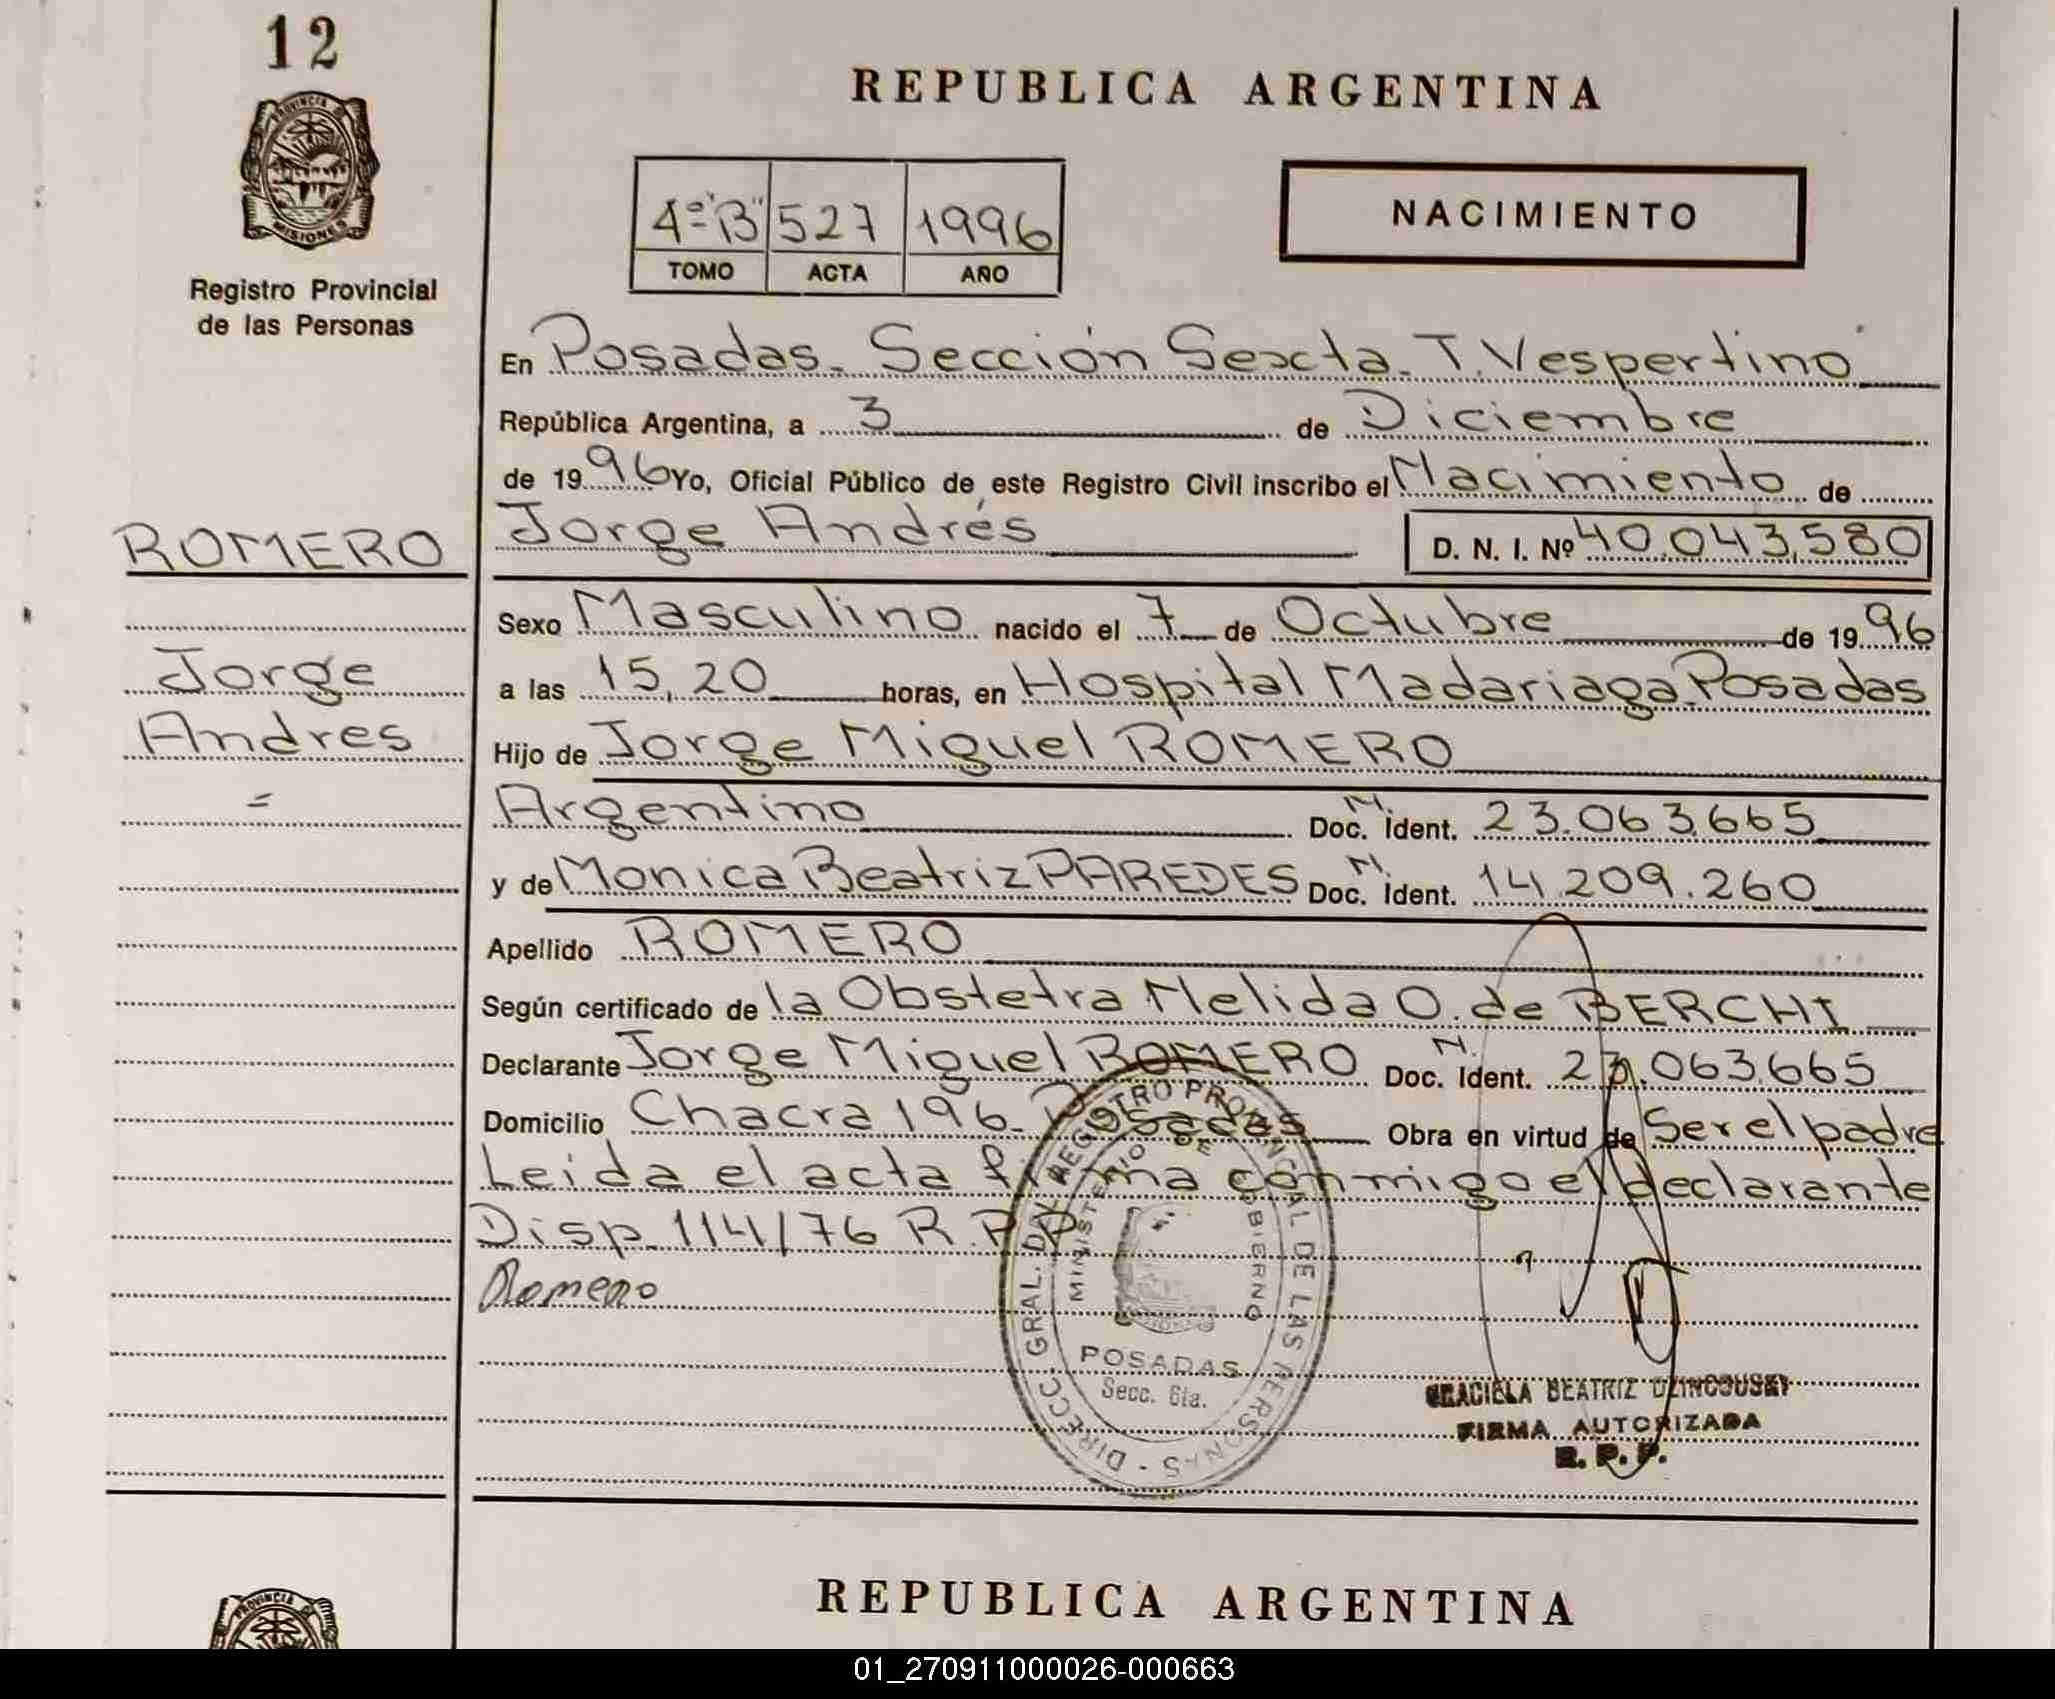 12
PROVINCIA DE
MISIONES
Registro Provincial
de las Personas
REPUBLICA ARGENTINA
4º "B" 527 1996
TOMO ACTA AÑO
NACIMIENTO
En Posadas. Sección Sexta. T. Vespertino
República Argentina, a 3 de Diciembre
de 1996 Yo, Oficial Público de este Registro Civil inscribo el Nacimiento de
Jorge Andrés D. N. I. Nº 40.043.580
ROMERO
Jorge
Andres
=
Sexo Masculino nacido el 7 de Octubre de 1996
a las 15,20 horas, en Hospital Madariaga Posadas
Hijo de Jorge Miguel ROMERO
Argentino Doc. N. Ident. 23.063.665
y de Monica Beatriz PAREDES Doc. N. Ident. 14.209.260
Apellido ROMERO
Según certificado de la Obstetra Nelida O. de BERCHI
Declarante Jorge Miguel ROMERO Doc. N. Ident. 23.063.665
Domicilio Chacra 196. Posadas Obra en virtud de Ser el padre
Leida el acta firma conmigo el declarante
Disp. 114/76 R.P.P.
Romero
DIRECC. GRAL. DEL REGISTRO PROVINCIAL DE LAS PERSONAS -
MINISTERIO DE GOBIERNO
POSADAS
Secc. 6ta.
GRACIELA BEATRIZ
FIRMA AUTORIZADA
R. P. P.
PROVINCIA DE
REPUBLICA ARGENTINA
01_270911000026-000663